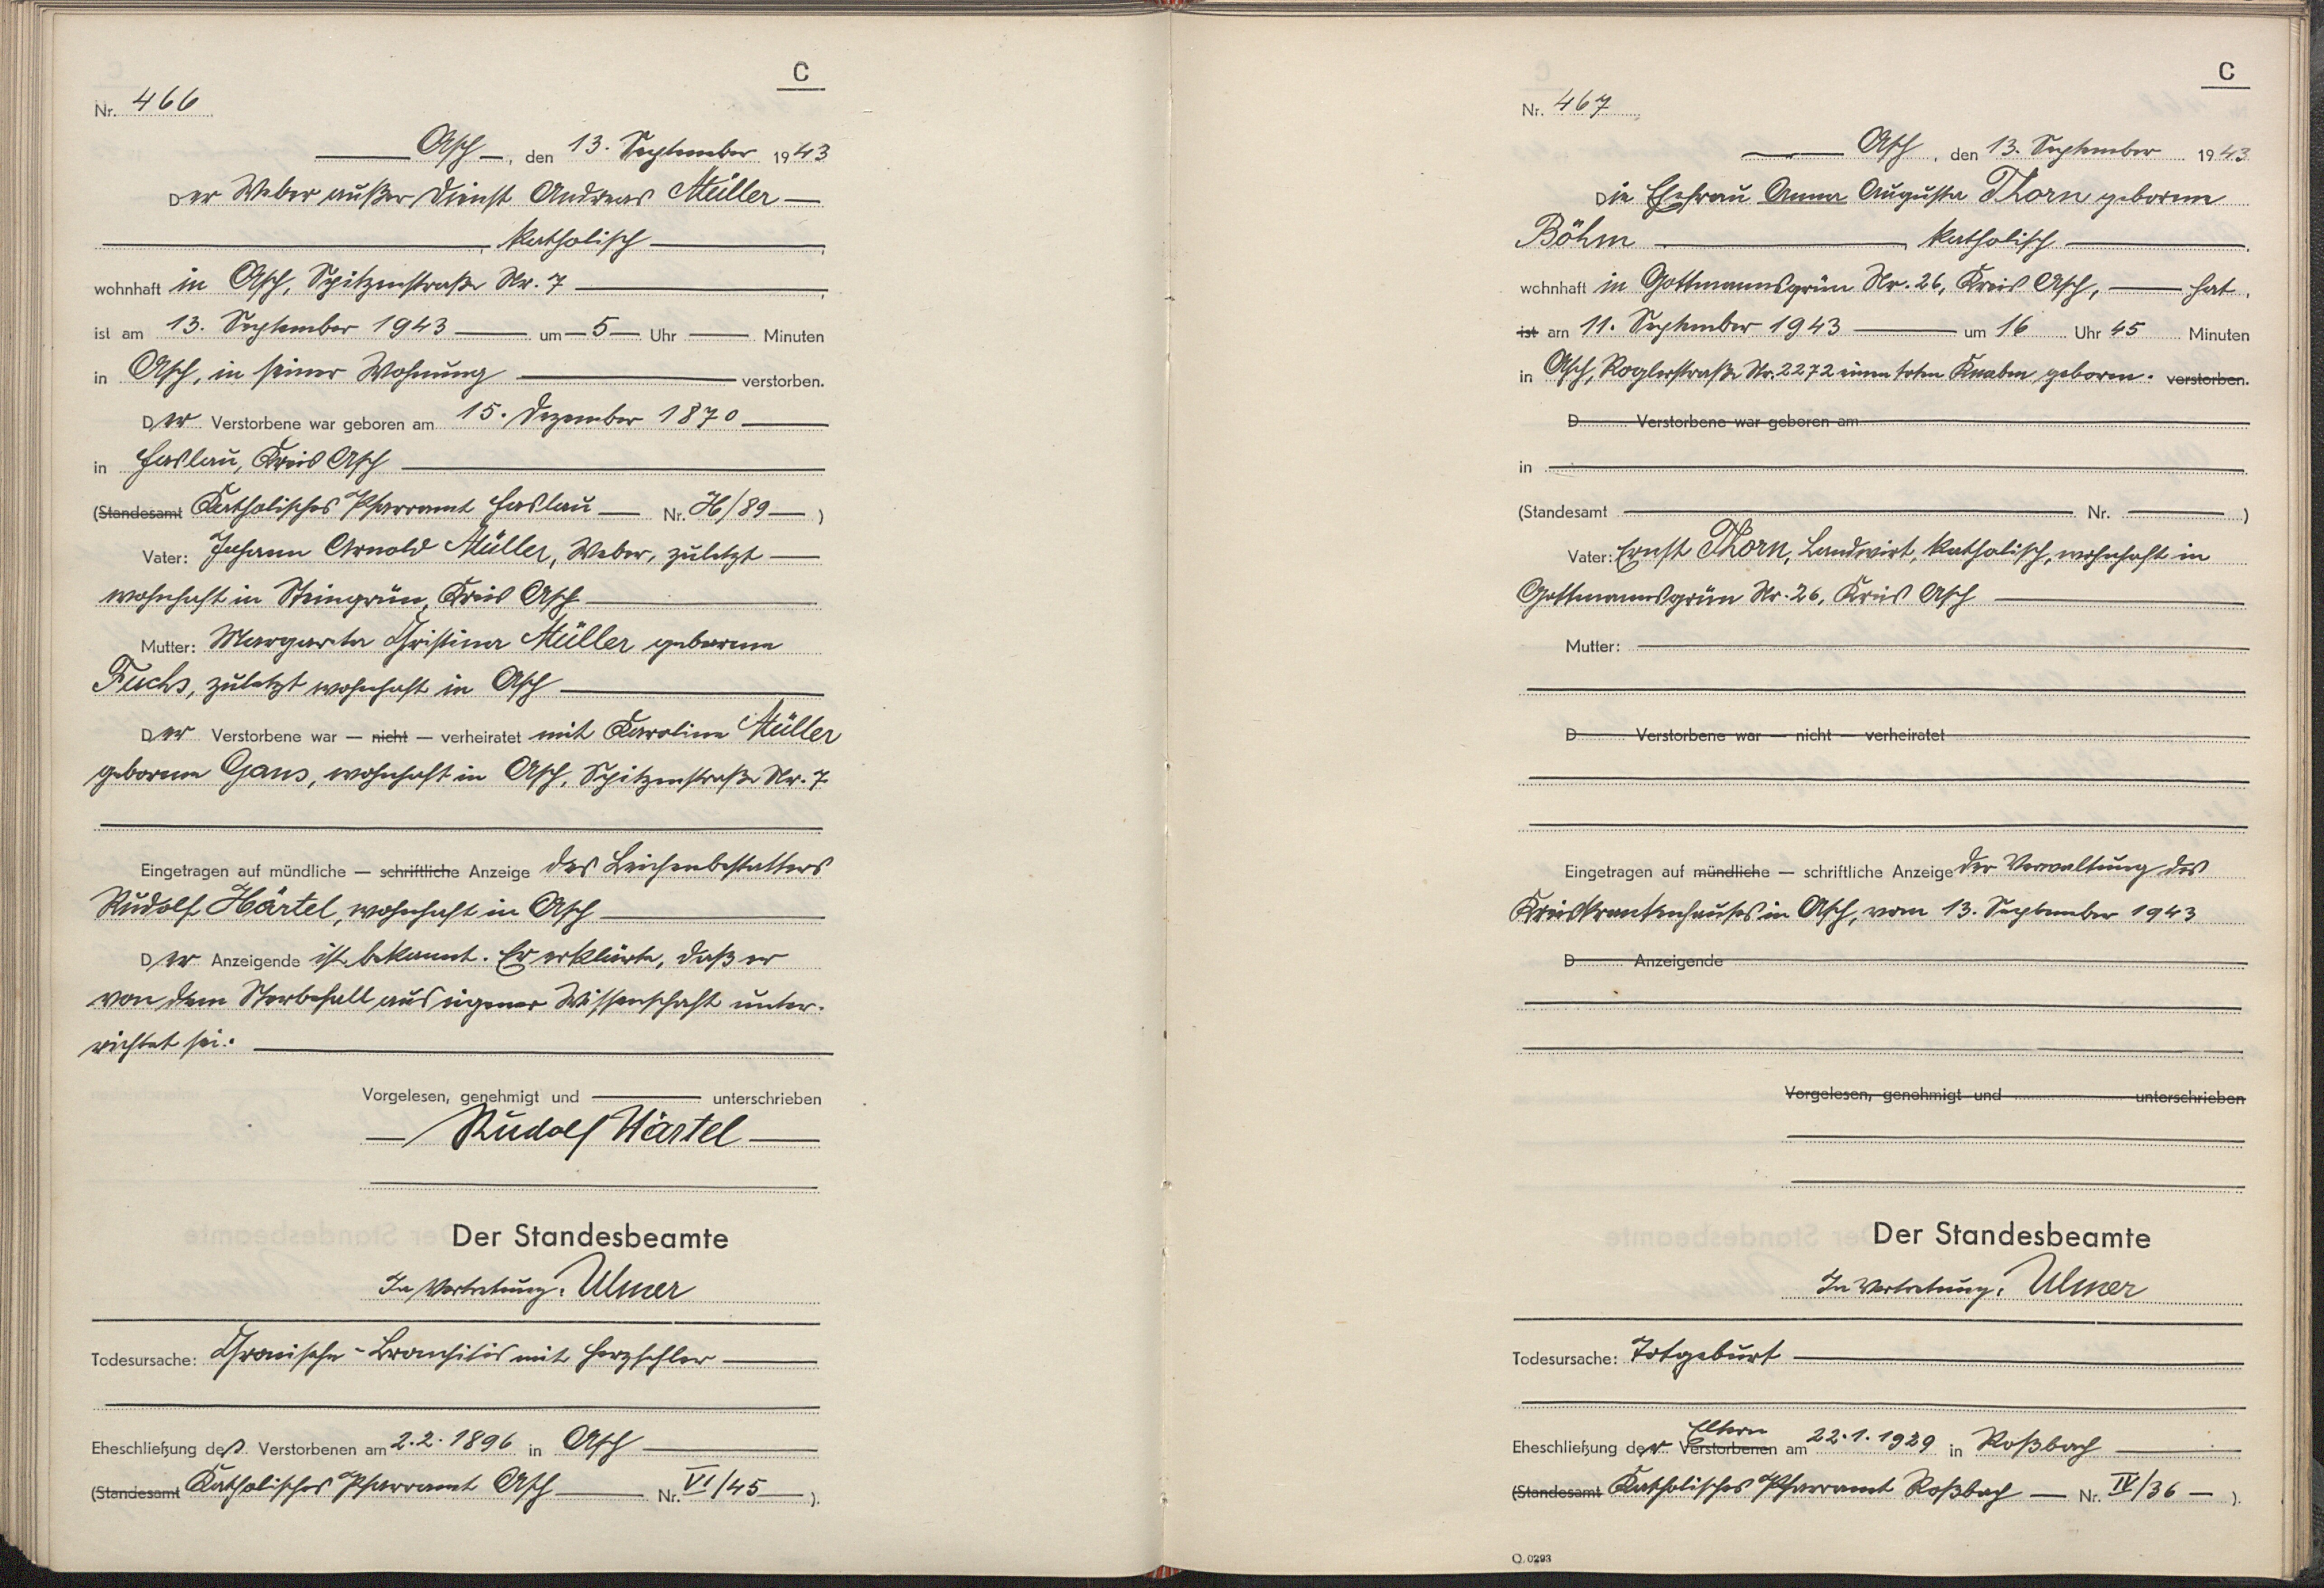 C
Nr. 466
Asch, den 13. September 1943
Der Weber außer Dienst Andreas Müller
, katholisch,
wohnhaft in Asch, Spitzenstraße Nr. 7,
ist am 13. September 1943 um 5 Uhr Minuten
in Asch, in seiner Wohnung verstorben.
Der Verstorbene war geboren am 15. Dezember 1870
in Haslau, Kreis Asch
(Standesamt Katholisches Pfarramt Haslau Nr. H/89)
Vater: Johann Arnold Müller, Weber, zuletzt
wohnhaft in Steingrün, Kreis Asch
Mutter: Margareta Christina Müller geborene
Fuchs, zuletzt wohnhaft in Asch
Der Verstorbene war — nicht — verheiratet mit Karoline Müller
geborene Gans, wohnhaft in Asch, Spitzenstraße Nr. 7.
Eingetragen auf mündliche — schriftliche Anzeige des Leichenbestatters
Rudolf Härtel, wohnhaft in Asch
Der Anzeigende ist bekannt. Er erklärte, daß er
von dem Sterbefall aus eigener Wissenschaft unter-
richtet sei.
Vorgelesen, genehmigt und unterschrieben
Rudolf Härtel
Der Standesbeamte
In Vertretung: Ulmer
Todesursache: Chronische-Bronchitis mit Herzfehler
Eheschließung des Verstorbenen am 2.2.1896 in Asch
(Standesamt Katholisches Pfarramt Asch Nr. VI/45).
C
Nr. 467
Asch, den 13. September 1943
Die Ehefrau Anna Augusta Thorn geborene
Böhm, katholisch,
wohnhaft in Gottmannsgrün Nr. 26, Kreis Asch, hat,
ist am 11. September 1943 um 16 Uhr 45 Minuten
in Asch, Roglerstraße Nr. 2272 einen toten Knaben geboren. verstorben.
D Verstorbene war geboren am
in
(Standesamt Nr. )
Vater: Ernst Thorn, Landwirt, katholisch, wohnhaft in
Gottmannsgrün Nr. 26, Kreis Asch
Mutter:
D Verstorbene war — nicht — verheiratet
Eingetragen auf mündliche — schriftliche Anzeige der Verwaltung des
Kreiskrankenhauses in Asch, vom 13. September 1943
D Anzeigende
Vorgelesen, genehmigt und unterschrieben
Der Standesbeamte
In Vertretung: Ulmer
Todesursache: Totgeburt
Eheschließung der Verstorbenen Eltern am 22.1.1929 in Roßbach
(Standesamt Katholisches Pfarramt Roßbach Nr. IV/36).
Q. 0293